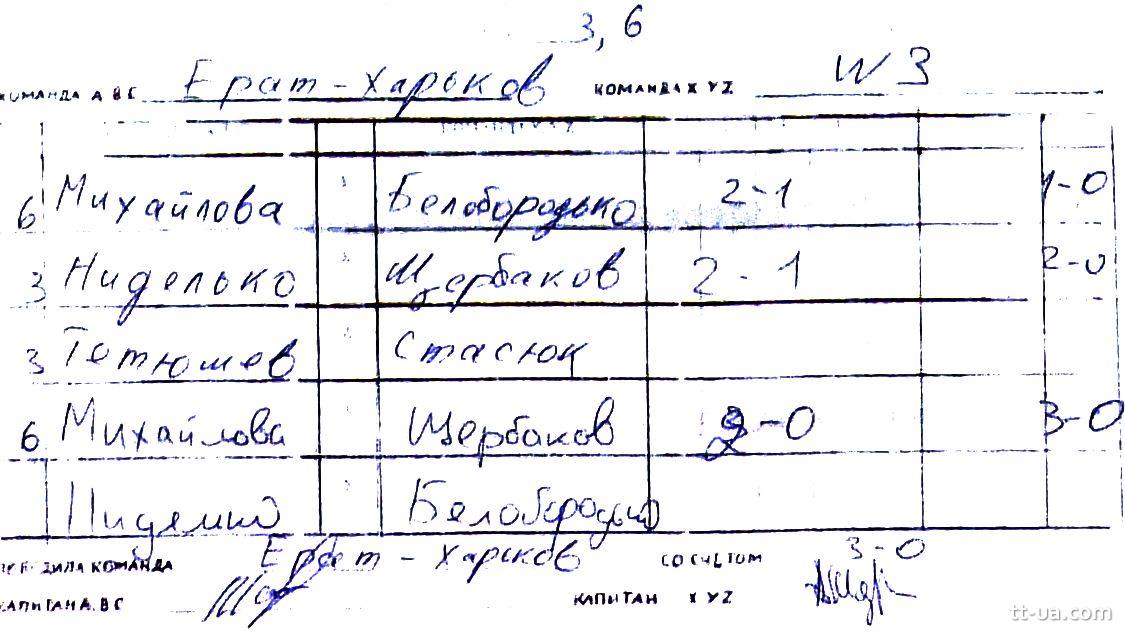 3, 6
КОМАНДА А В С Ерат - Харьков КОМАНДА X Y Z W 3
6 Михайлова Белобородько 2-1 1-0
3 Ниделько Щербаков 2-1 2-0
3 Тетюшев Стасюк
6 Михайлова Щербаков 2-0 3-0
Белобородько
КОМАНДА Ерат - Харьков СО СЧЕТОМ 3-0
КАПИТАН А В С КАПИТАН X Y Z
tt-ua.com